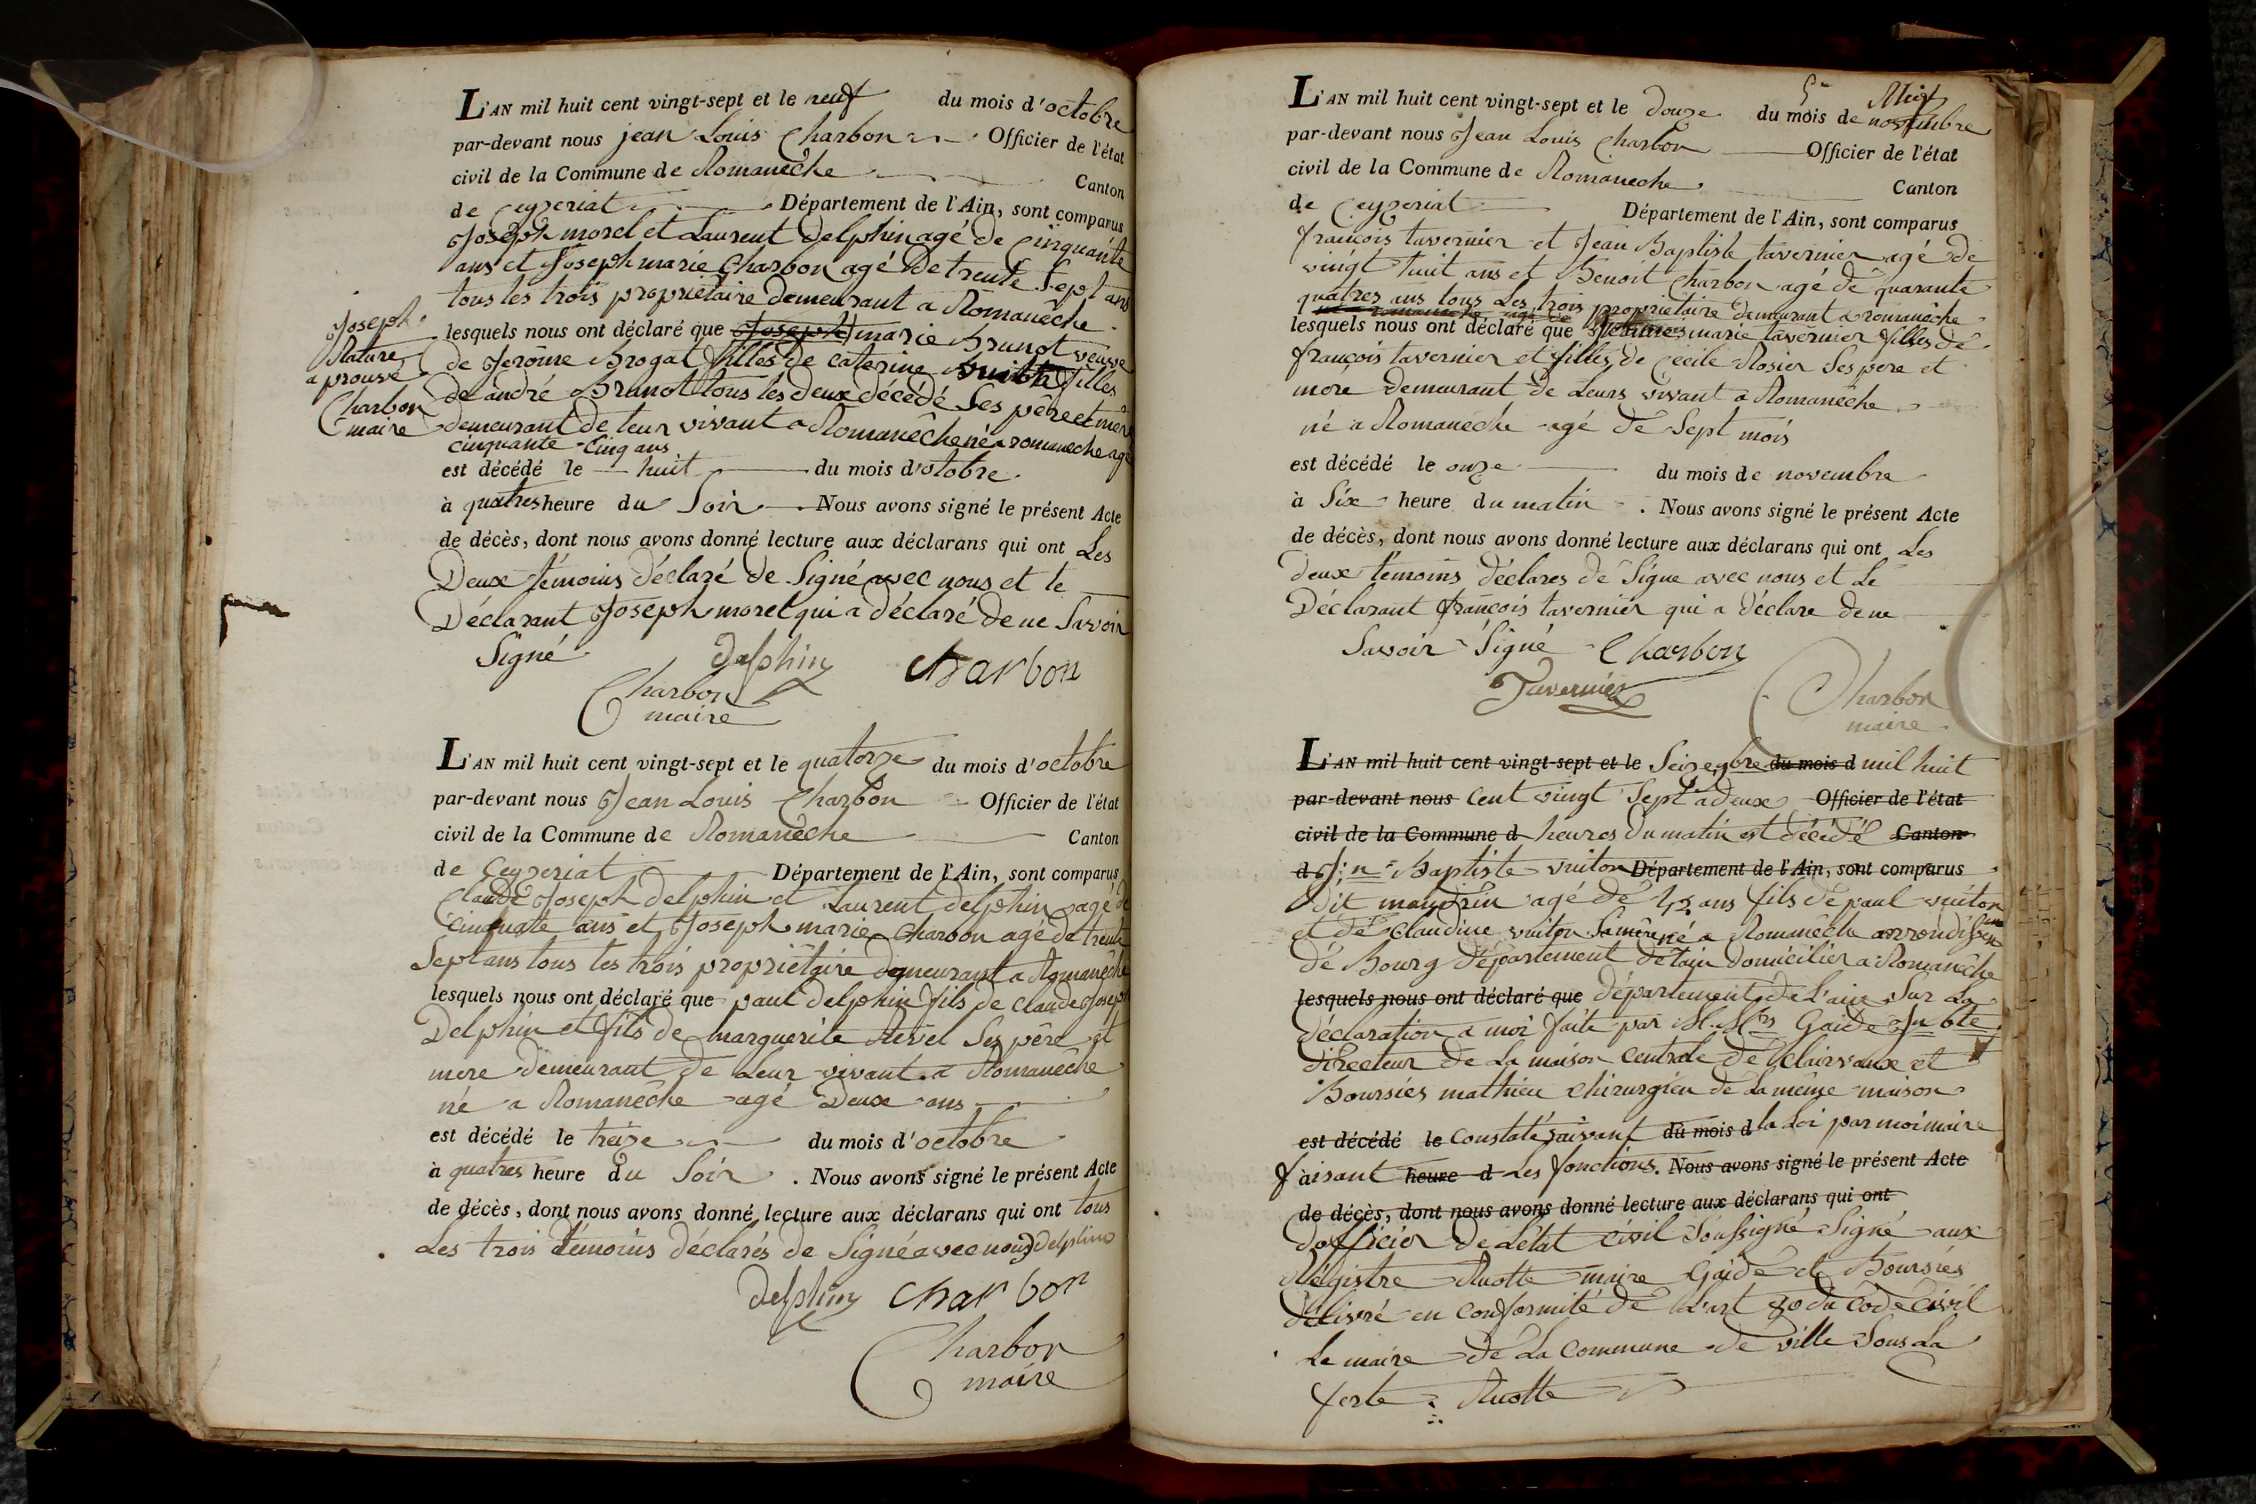 L'AN mil huit cent vingt-sept et le neuf du mois d'octobre
par-devant nous jean Louis Charbon Officier de l'état
civil de la Commune de Romanêche Canton
de Ceyzeriat Département de l'Ain, sont comparus
Joseph morel et Laurent Delphin agé de Cinquante
ans et Joseph marie Charbon agé De trente Sept ans
tous les trois proprietaire Demeurant a Romanêche
lesquels nous ont déclaré que Joseph marie Brunot veuve
de Jerôme Brogat filles de caterine filles
de andré Brunot tous les deux décédé Ses père et mere
demeurant de leur vivant a Romanêche né a romaneche agé
cinquante-Cinq ans
est décédé le huit du mois d'otobre
à quatres heure du Soir. Nous avons signé le présent Acte
de décès, dont nous avons donné lecture aux déclarans qui ont Les
Deux témoins déclaré de Signé avec nous et le
Déclarant Joseph morel qui a déclaré de ne Savoir
Signé
Delphin Charbon
Charbon
maire
Joseph
Rature
a prouvé
Charbon
maire
L'AN mil huit cent vingt-sept et le quatorze du mois d'octobre
par-devant nous Jean Louis Charbon Officier de l'état
civil de la Commune de Romanêche Canton
de Ceyzeriat Département de l'Ain, sont comparus
Claude Joseph delphin et Laurent delphin agé de
Cinquate ans et Joseph marie Charbon agé de trente
Sept ans tous les trois propriétaire demeurant a Romanêche
lesquels nous ont déclaré que paul delphin fils de Claude Joseph
Delphin et fils de marguerite Revel Ses père et
mere demeurant de Leur vivant a Romanêche
né a Romanêche agé Deux ans
est décédé le treize du mois d'octobre
à quatres heure du Soir. Nous avons signé le présent Acte
de décès, dont nous avons donné lecture aux déclarans qui ont tous
Les trois témoins déclarés de Signé avec nous Delphin
delphin Charbon
Charbon
maire
L'AN mil huit cent vingt-sept et le douze du mois de novembre
par-devant nous Jean Louis Charbon Officier de l'état
civil de la Commune de Romaneche Canton
de Ceyzeriat Département de l'Ain, sont comparus
françois tavernier et Jean Baptiste tavernier agé de
vingt huit ans et Benoit Charbon agé de quarante
quatres ans tous Les trois proprietaire demeurant a romanêche
lesquels nous ont déclaré que marie tavernier filles de
françois tavernier et filles de Cecile Rosier Ses pere et
more demeurant de Leurs vivant a Romanêche
né a Romanéche agé de Sept mois
est décédé le onze du mois de novembre
à Six heure du matin. Nous avons signé le présent Acte
de décès, dont nous avons donné lecture aux déclarans qui ont Les
deux témoins déclares de Signe avec nous et Le
Déclarant françois tavernier qui a déclare de ne
Savoir Signé Charbon
Tavernier
Charbon
maire
L'AN mil huit cent vingt-sept et le Seize bre du mois d mil huit
par-devant nous Cent vingt Sept a deux Officier de l'état
civil de la Commune d heures du matin est décédé Canton
d J:n Baptiste vuiton Département de l'Ain, sont comparus
dit mandrin agé de 42 ans fils de paul vuiton
et de Claudine vuiton Sa mere né a Romanêche arrondissement
de Bourg département de lain domicilier a Romanêche
lesquels nous ont déclaré que département de L'ain Sur La
déclaration a moi faite par M.Mrs Gaide Jn bte
directeur de La maison Centrale de Clairvaux et
Boursiés mathieu Chirurgien de La même maison
est décédé le Constaté Suivant du mois d la Loi par moi maire
à faisant heure d Les fonctions. Nous avons signé le présent Acte
de décès, dont nous avons donné lecture aux déclarans qui ont
dofficier de L'état Civil Soussigné Signé aux
Régistre Ruotte maire Gaide et Boursiés
délivré en Conformité de L'art 80 du Code Civil
Le maire de La Commune de ville Sous La
ferte Ruotte